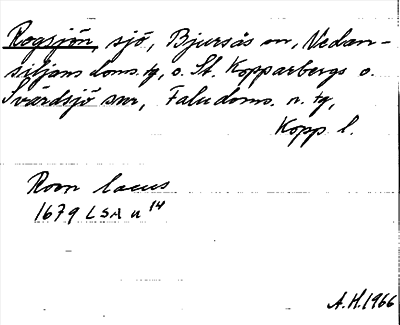 Rogsjön, sjö, Bjursås sn, Nedan-
siljans doms. tg, o. St. Kopparbergs o.
Svärdsjö snr, Falu doms. n. tg,
Kopp l.
Roen lacus
1679 LSA n 14
A.H. 1966